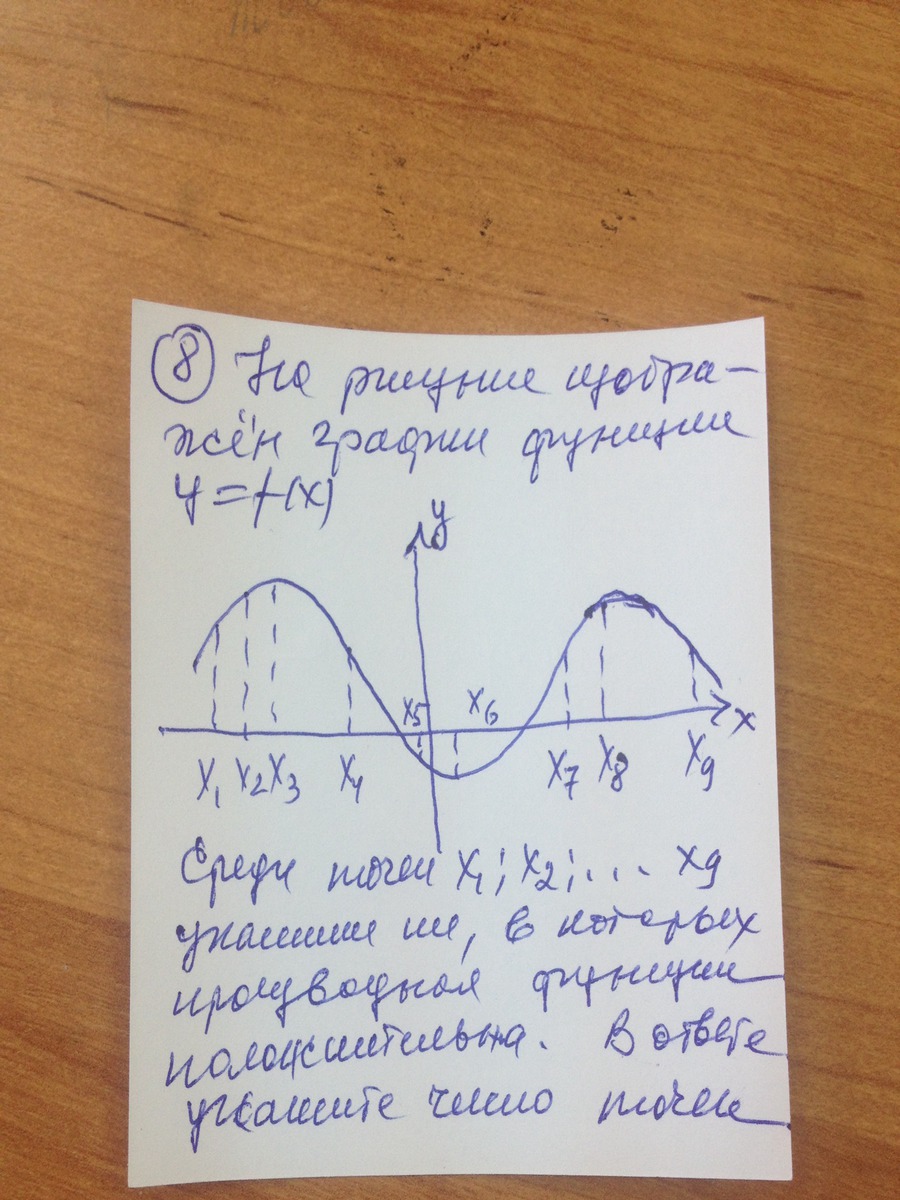 ⑧ На рисунке изобра-
жён график функции
y = f(x)
y
x5 x6
x
x1 x2 x3 x4 x7 x8 x9
Среди точек x1; x2; ... x9
укажите те, в которых
производная функции
положительна. В ответе
укажите число точек